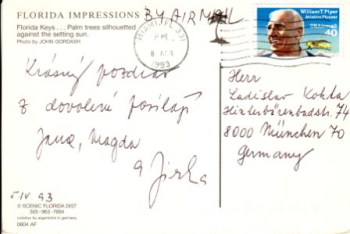 FLORIDA IMPRESSIONS
BY AIR MAIL
Florida Keys . . . Palm trees silhouetted
against the setting sun.
Photo by JOHN GORDASH
PM
8 APR
1993
William T. Piper
Aviation Pioneer
40
Krásný pozdrav
z dovolené posílají
Jana, Magda
a Jirka
5/IV 93
Herr
Ladislav Kokta
Hinterbärenbadstr 74
8000 München 70
Germany
© SCENIC FLORIDA DIST
305-963-7694
0804 AF